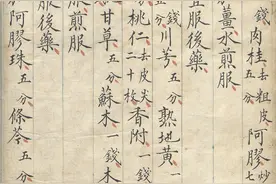 錢肉桂去粗皮五分阿膠炒七
薑水煎服
服後藥
錢川芎五分熟地黃一
桃仁去皮尖二十枚香附一錢
甘草五分蘇木一錢木
煎服
服後藥
阿膠珠五分條芩五分